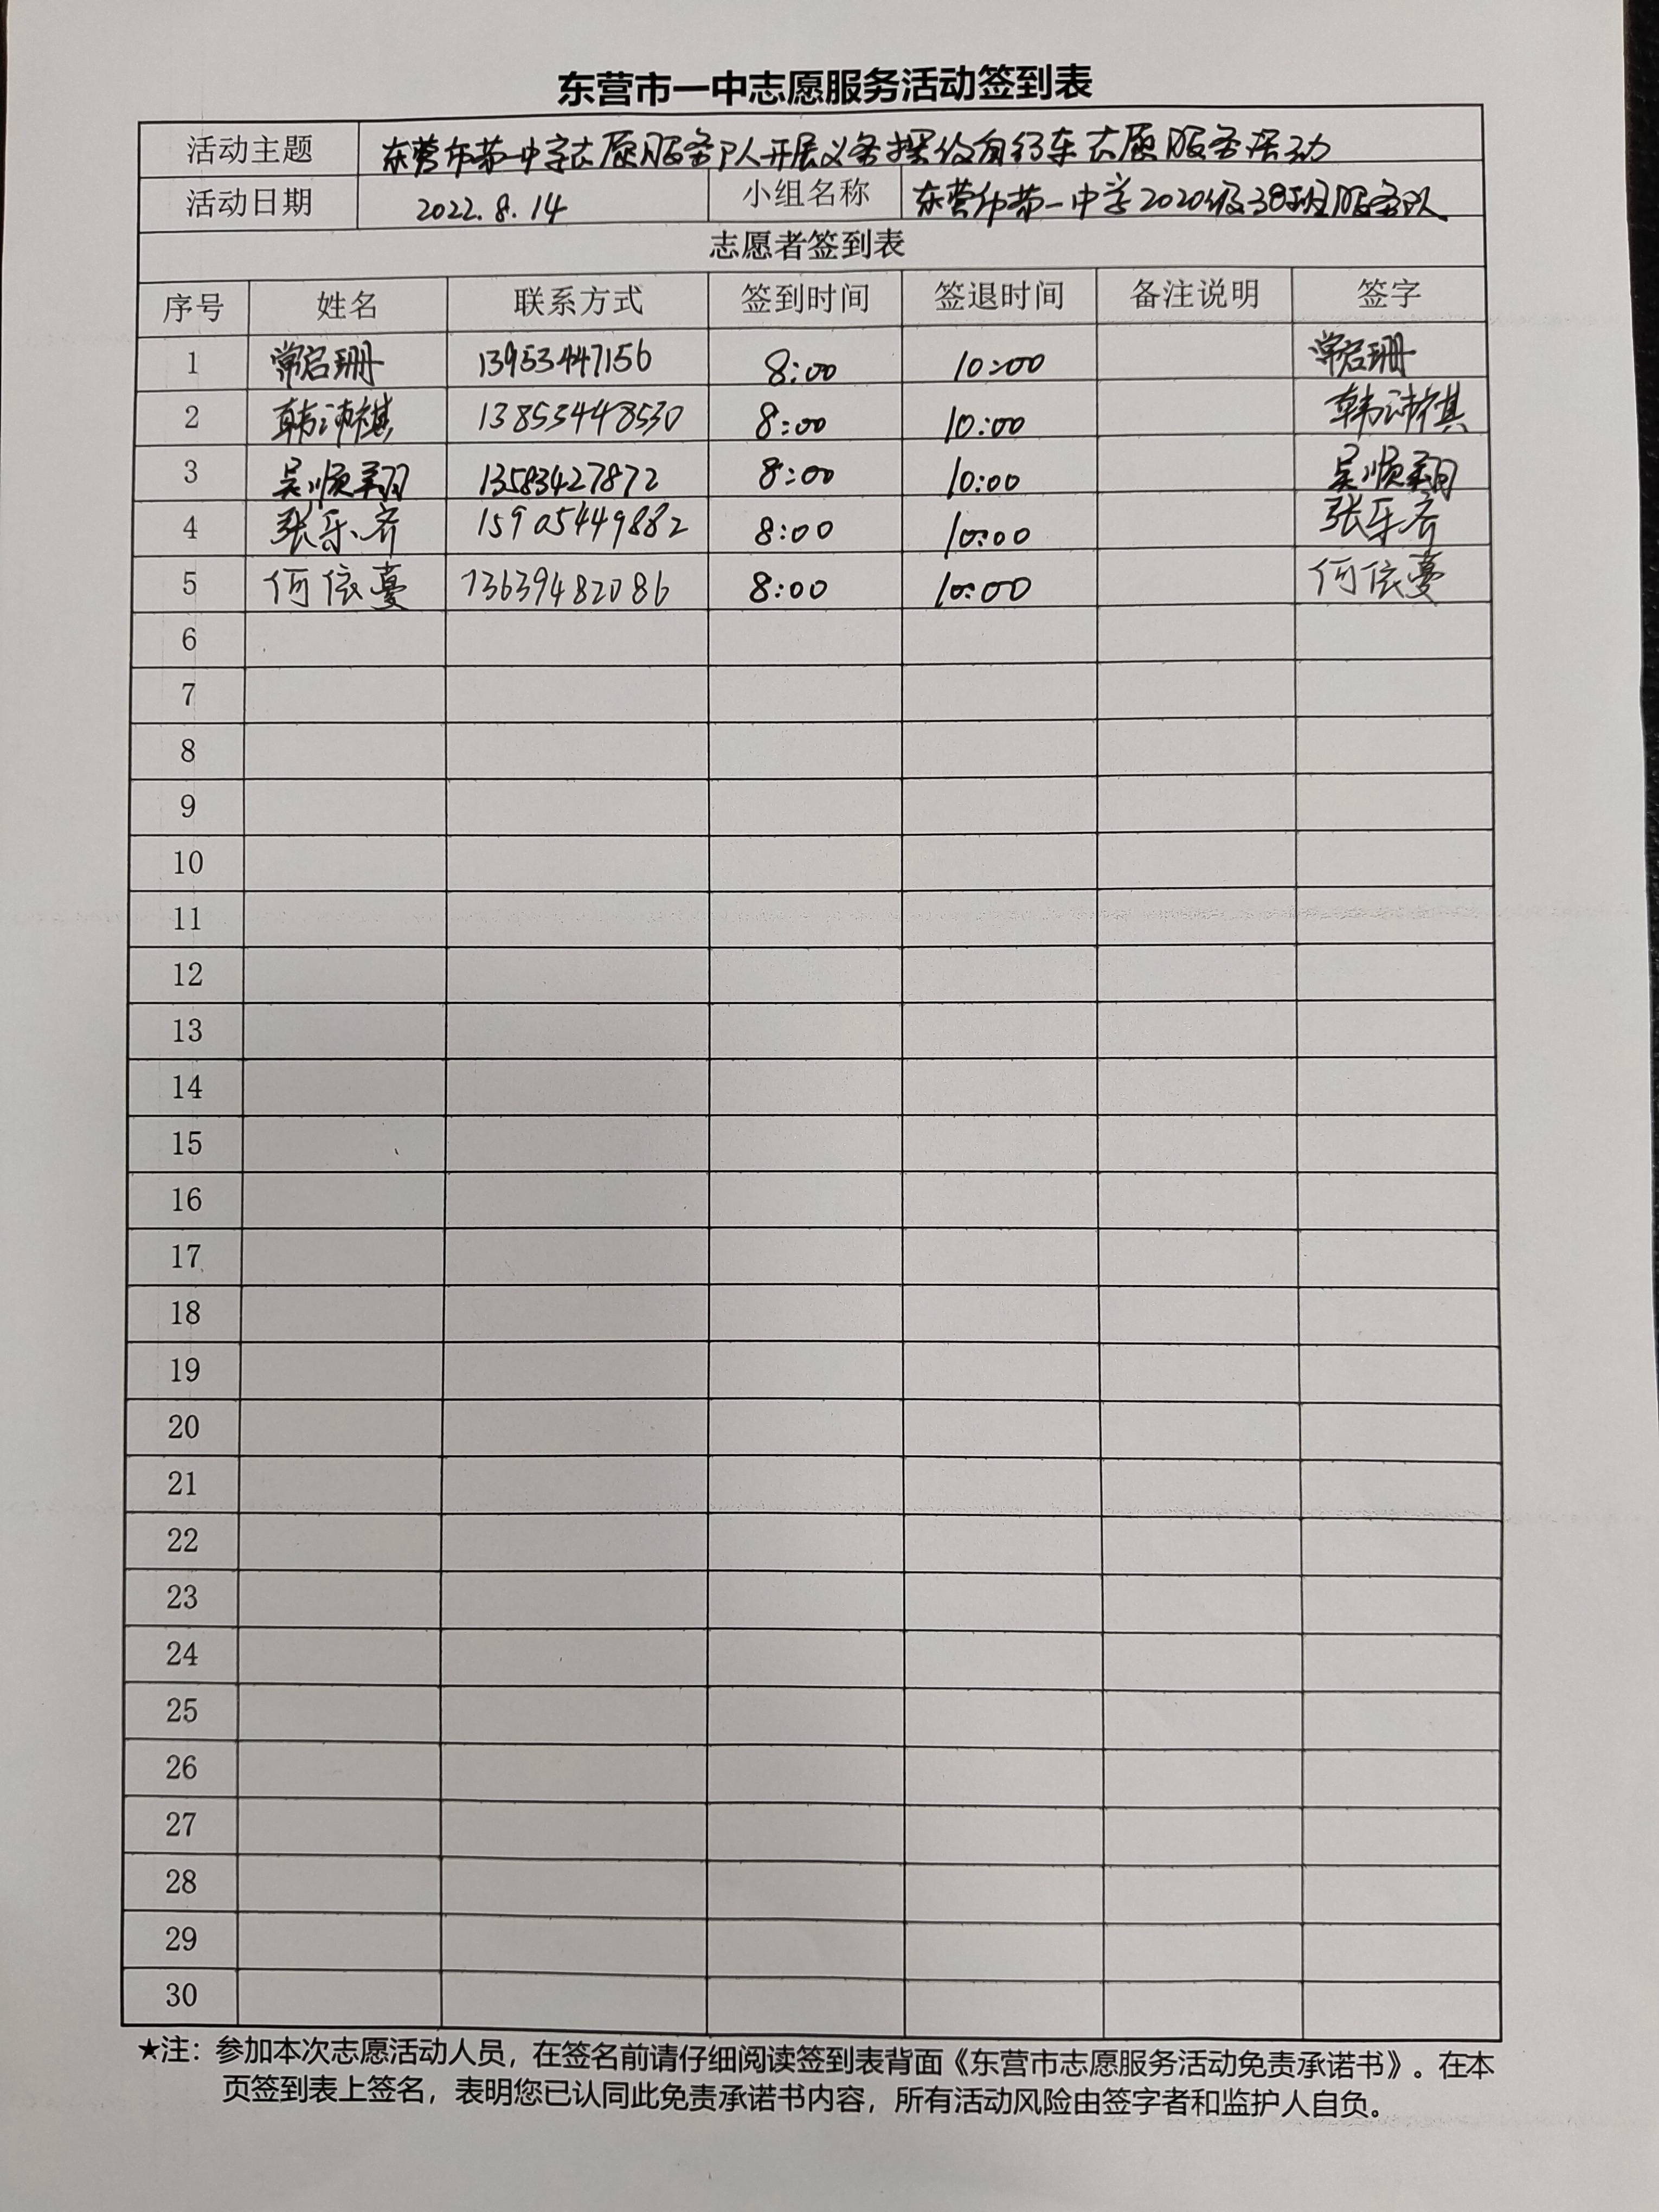 东营市一中志愿服务活动签到表
活动主题 东营市第一中学志愿服务队开展义务摆放自行车志愿服务活动
活动日期 2022.8.14 小组名称 东营市第一中学2020级38班服务队
志愿者签到表
序号 姓名 联系方式 签到时间 签退时间 备注说明 签字
1 常启珊 13953447156 8:00 10:00 常启珊
2 韩沛祺 13853448530 8:00 10:00 韩沛祺
3 吴顺翔 13583427872 8:00 10:00 吴顺翔
4 张乐齐 15905449882 8:00 10:00 张乐齐
5 何依蔓 13639482086 8:00 10:00 何依蔓
6
7
8
9
10
11
12
13
14
15
16
17
18
19
20
21
22
23
24
25
26
27
28
29
30
★注：参加本次志愿活动人员，在签名前请仔细阅读签到表背面《东营市志愿服务活动免责承诺书》。在本
页签到表上签名，表明您已认同此免责承诺书内容，所有活动风险由签字者和监护人自负。